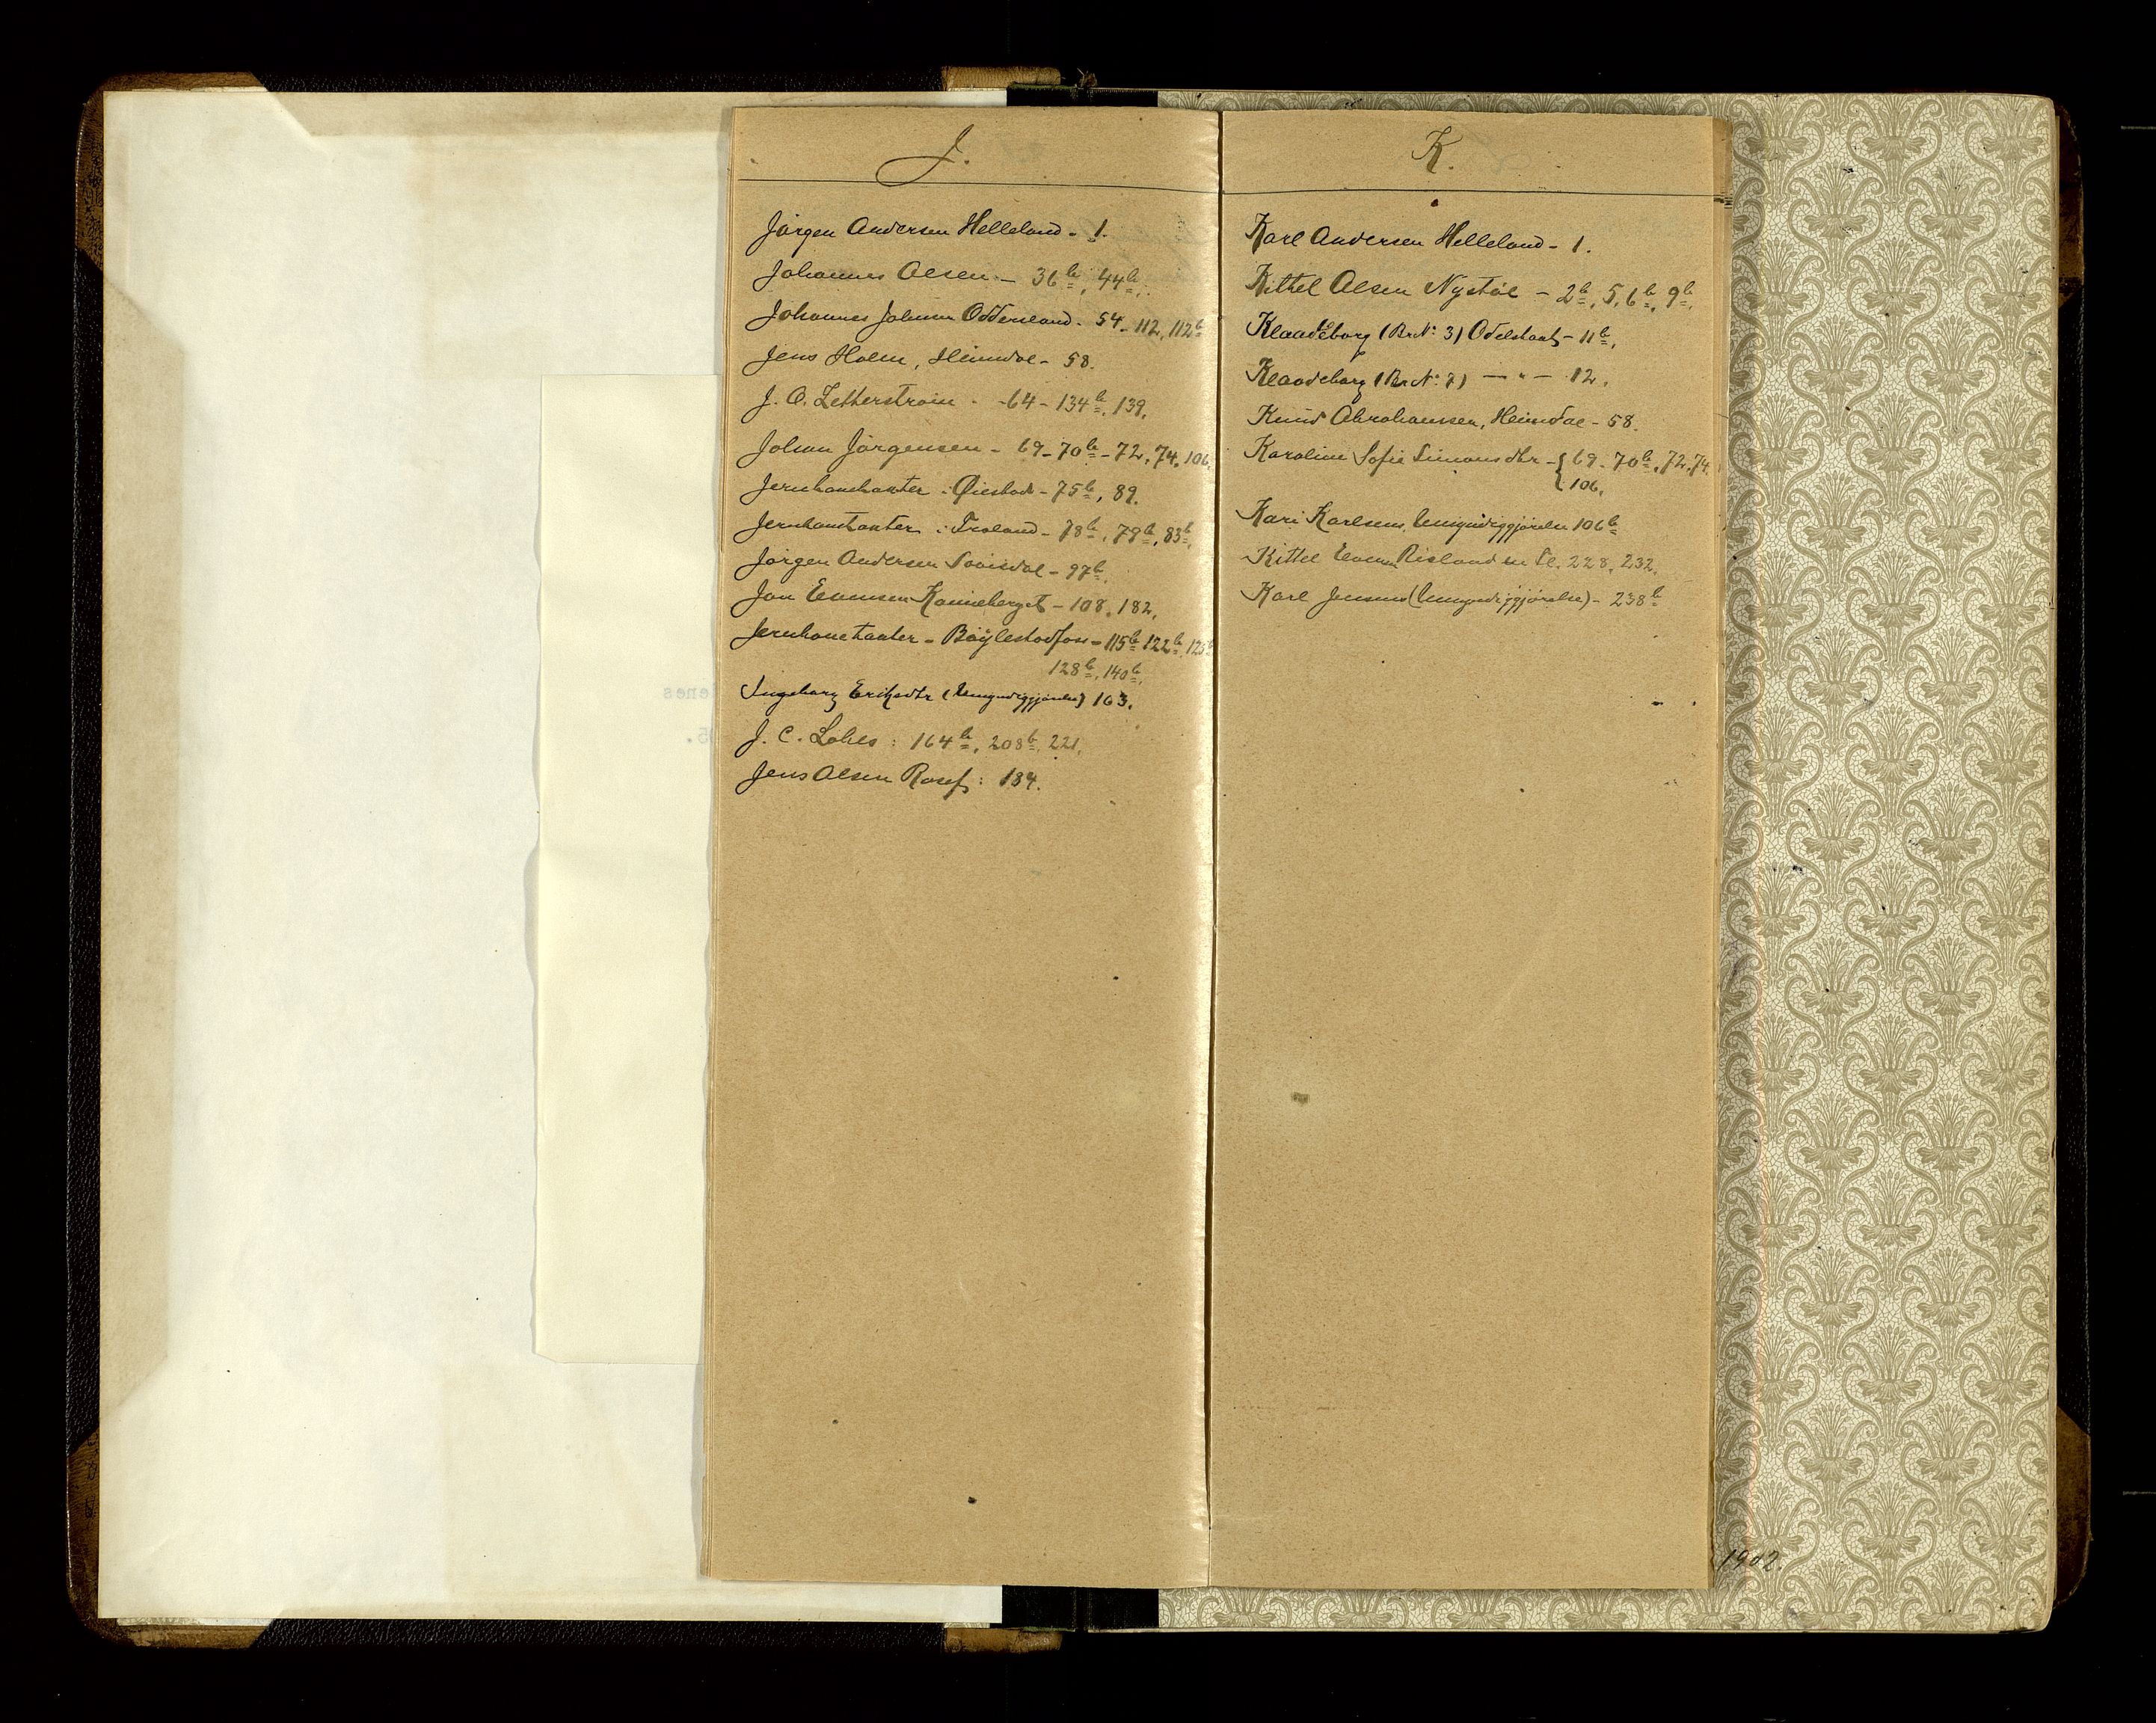 J.
Jørgen Andersen Helleland - 1.
Johannes Olsen - 36b, 44b,
Johannes Johnsen Oddersland - 54 - 112, 112b
Jens Holm, Heimdal - 58.
J. O. Zetterstrøm - 64 - 134b, 139.
Johan Jørgensen - 69 - 70b - 72, 74, 106,
Jernbanetakster i Øiestad - 75b, 89.
Jernbanetakter i Froland - 78b, 79b, 83b,
Jørgen Andersen - 97b.
Jon Evensen Kanneberget - 108, 182,
Jernbanetakster - Bøylestadfoss - 115b 122b, 125b
128b, 140b,
Ingeborg Eriksdtr (Umyndiggjørelse) 163.
J. C. : 164b, 208b, 221,
Jens Olsen : 184.
K.
Karl Andersen Helleland - 1.
Kittel Olsen Nystøl - 2b, 5, 6b, 9b,
Klaadeborg (Br№ 3) Odelstakst - 11b,
Klaadeborg (Br№ 7) — " — 12.
Knud Abrahamsen, Heimdal - 58.
Karoline Sofie Simonsdtr - { 69 - 70b, 72, 74,
106,
Kari Karlsens Umyndiggjørelse 106b
Kittel Evensen Risland m fl. 228, 232,
Karl Jensens (Umyndiggjørelse) - 238b
1902.